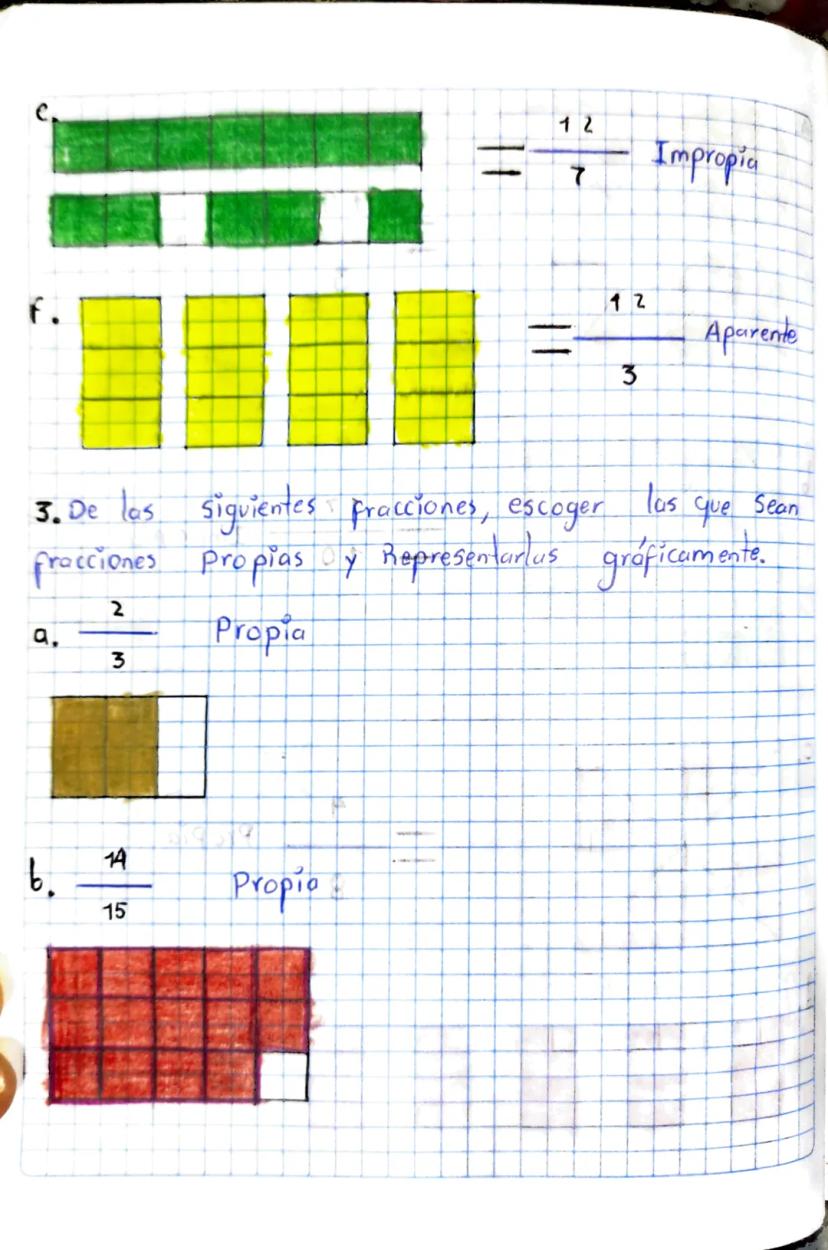 e.
= 12/7 Impropia
f.
= 12/3 Aparente
3. De las siguientes fracciones, escoger las que sean
fracciones propias y Representarlas gráficamente.
a. 2/3 Propia
b. 14/15 Propia